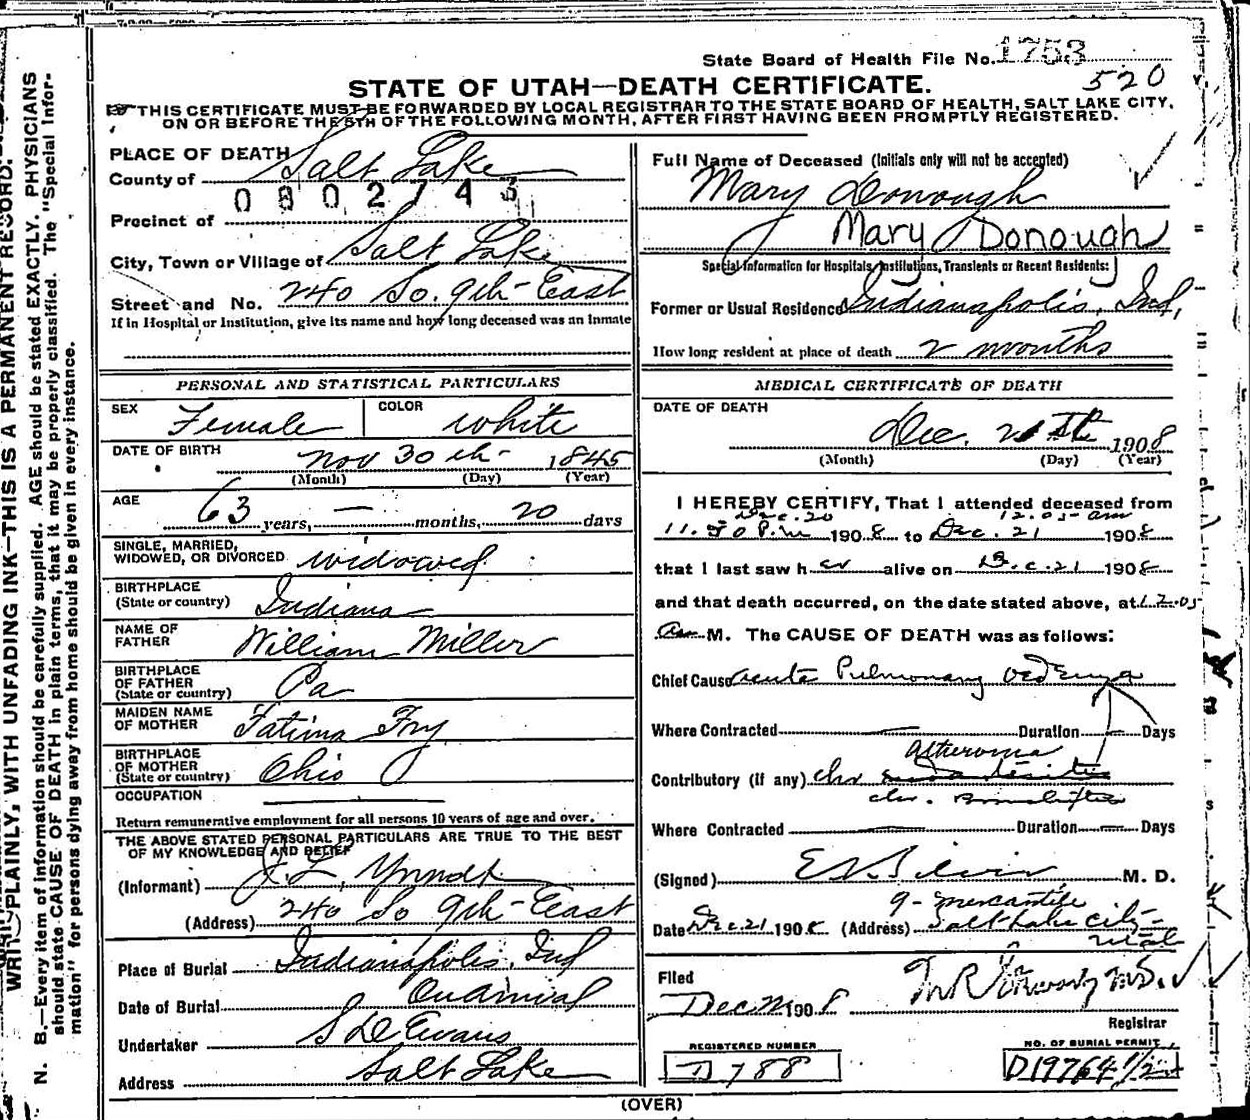 State Board of Health File No. 1753
520
STATE OF UTAH—DEATH CERTIFICATE.
THIS CERTIFICATE MUST BE FORWARDED BY LOCAL REGISTRAR TO THE STATE BOARD OF HEALTH, SALT LAKE CITY,
ON OR BEFORE THE 5TH OF THE FOLLOWING MONTH, AFTER FIRST HAVING BEEN PROMPTLY REGISTERED.
PLACE OF DEATH
County of Salt Lake
0802743
Precinct of
City, Town or Village of Salt Lake
Street and No. 240 So. 9th East
If in Hospital or Institution, give its name and how long deceased was an Inmate
Full Name of Deceased (Initials only will not be accepted)
Mary Donough
Mary Donough
Special Information for Hospitals, Institutions, Transients or Recent Residents:
Former or Usual Residence Indianapolis, Ind,
How long resident at place of death 2 months
PERSONAL AND STATISTICAL PARTICULARS
SEX Female COLOR White
DATE OF BIRTH Nov 30th 1845
(Month) (Day) (Year)
AGE 63 years, — months, 20 days
SINGLE, MARRIED,
WIDOWED, OR DIVORCED widowed
BIRTHPLACE
(State or country) Indiana
NAME OF
FATHER William Miller
BIRTHPLACE
OF FATHER
(State or country) Pa
MAIDEN NAME
OF MOTHER Fatima Fry
BIRTHPLACE
OF MOTHER
(State or country) Ohio
OCCUPATION
Return remunerative employment for all persons 10 years of age and over.
THE ABOVE STATED PERSONAL PARTICULARS ARE TRUE TO THE BEST
OF MY KNOWLEDGE AND BELIEF
(Informant) J. L.
(Address) 240 So 9th East
Place of Burial Indianapolis, Ind
Date of Burial On Arrival
Undertaker S D Evans
Address Salt Lake
MEDICAL CERTIFICATE OF DEATH
DATE OF DEATH
Dec. 21st 1908
(Month) (Day) (Year)
I HEREBY CERTIFY, That I attended deceased from
Dec. 20 12.05 am
11.50 P.m 1908 to Dec. 21 1908
that I last saw her alive on Dec. 21 1908
and that death occurred, on the date stated above, at 12.05
am M. The CAUSE OF DEATH was as follows:
Chief Cause acute Pulmonary oedema
Where Contracted — Duration — Days
atheroma
Contributory (if any) chr
chr. Bronchitis
Where Contracted — Duration — Days
(Signed) M. D.
9 - mercantile
Date Dec. 21 1908 (Address) Salt Lake City
Utah
Filed
Dec 1908
Registrar
REGISTERED NUMBER
D 788
NO. OF BURIAL PERMIT
D19764 1/2
(OVER)
WRITE PLAINLY, WITH UNFADING INK—THIS IS A PERMANENT RECORD.
N. B.—Every item of information should be carefully supplied. AGE should be stated EXACTLY. PHYSICIANS
should state CAUSE OF DEATH in plain terms, that it may be properly classified. The "Special Infor-
mation" for persons dying away from home should be given in every instance.